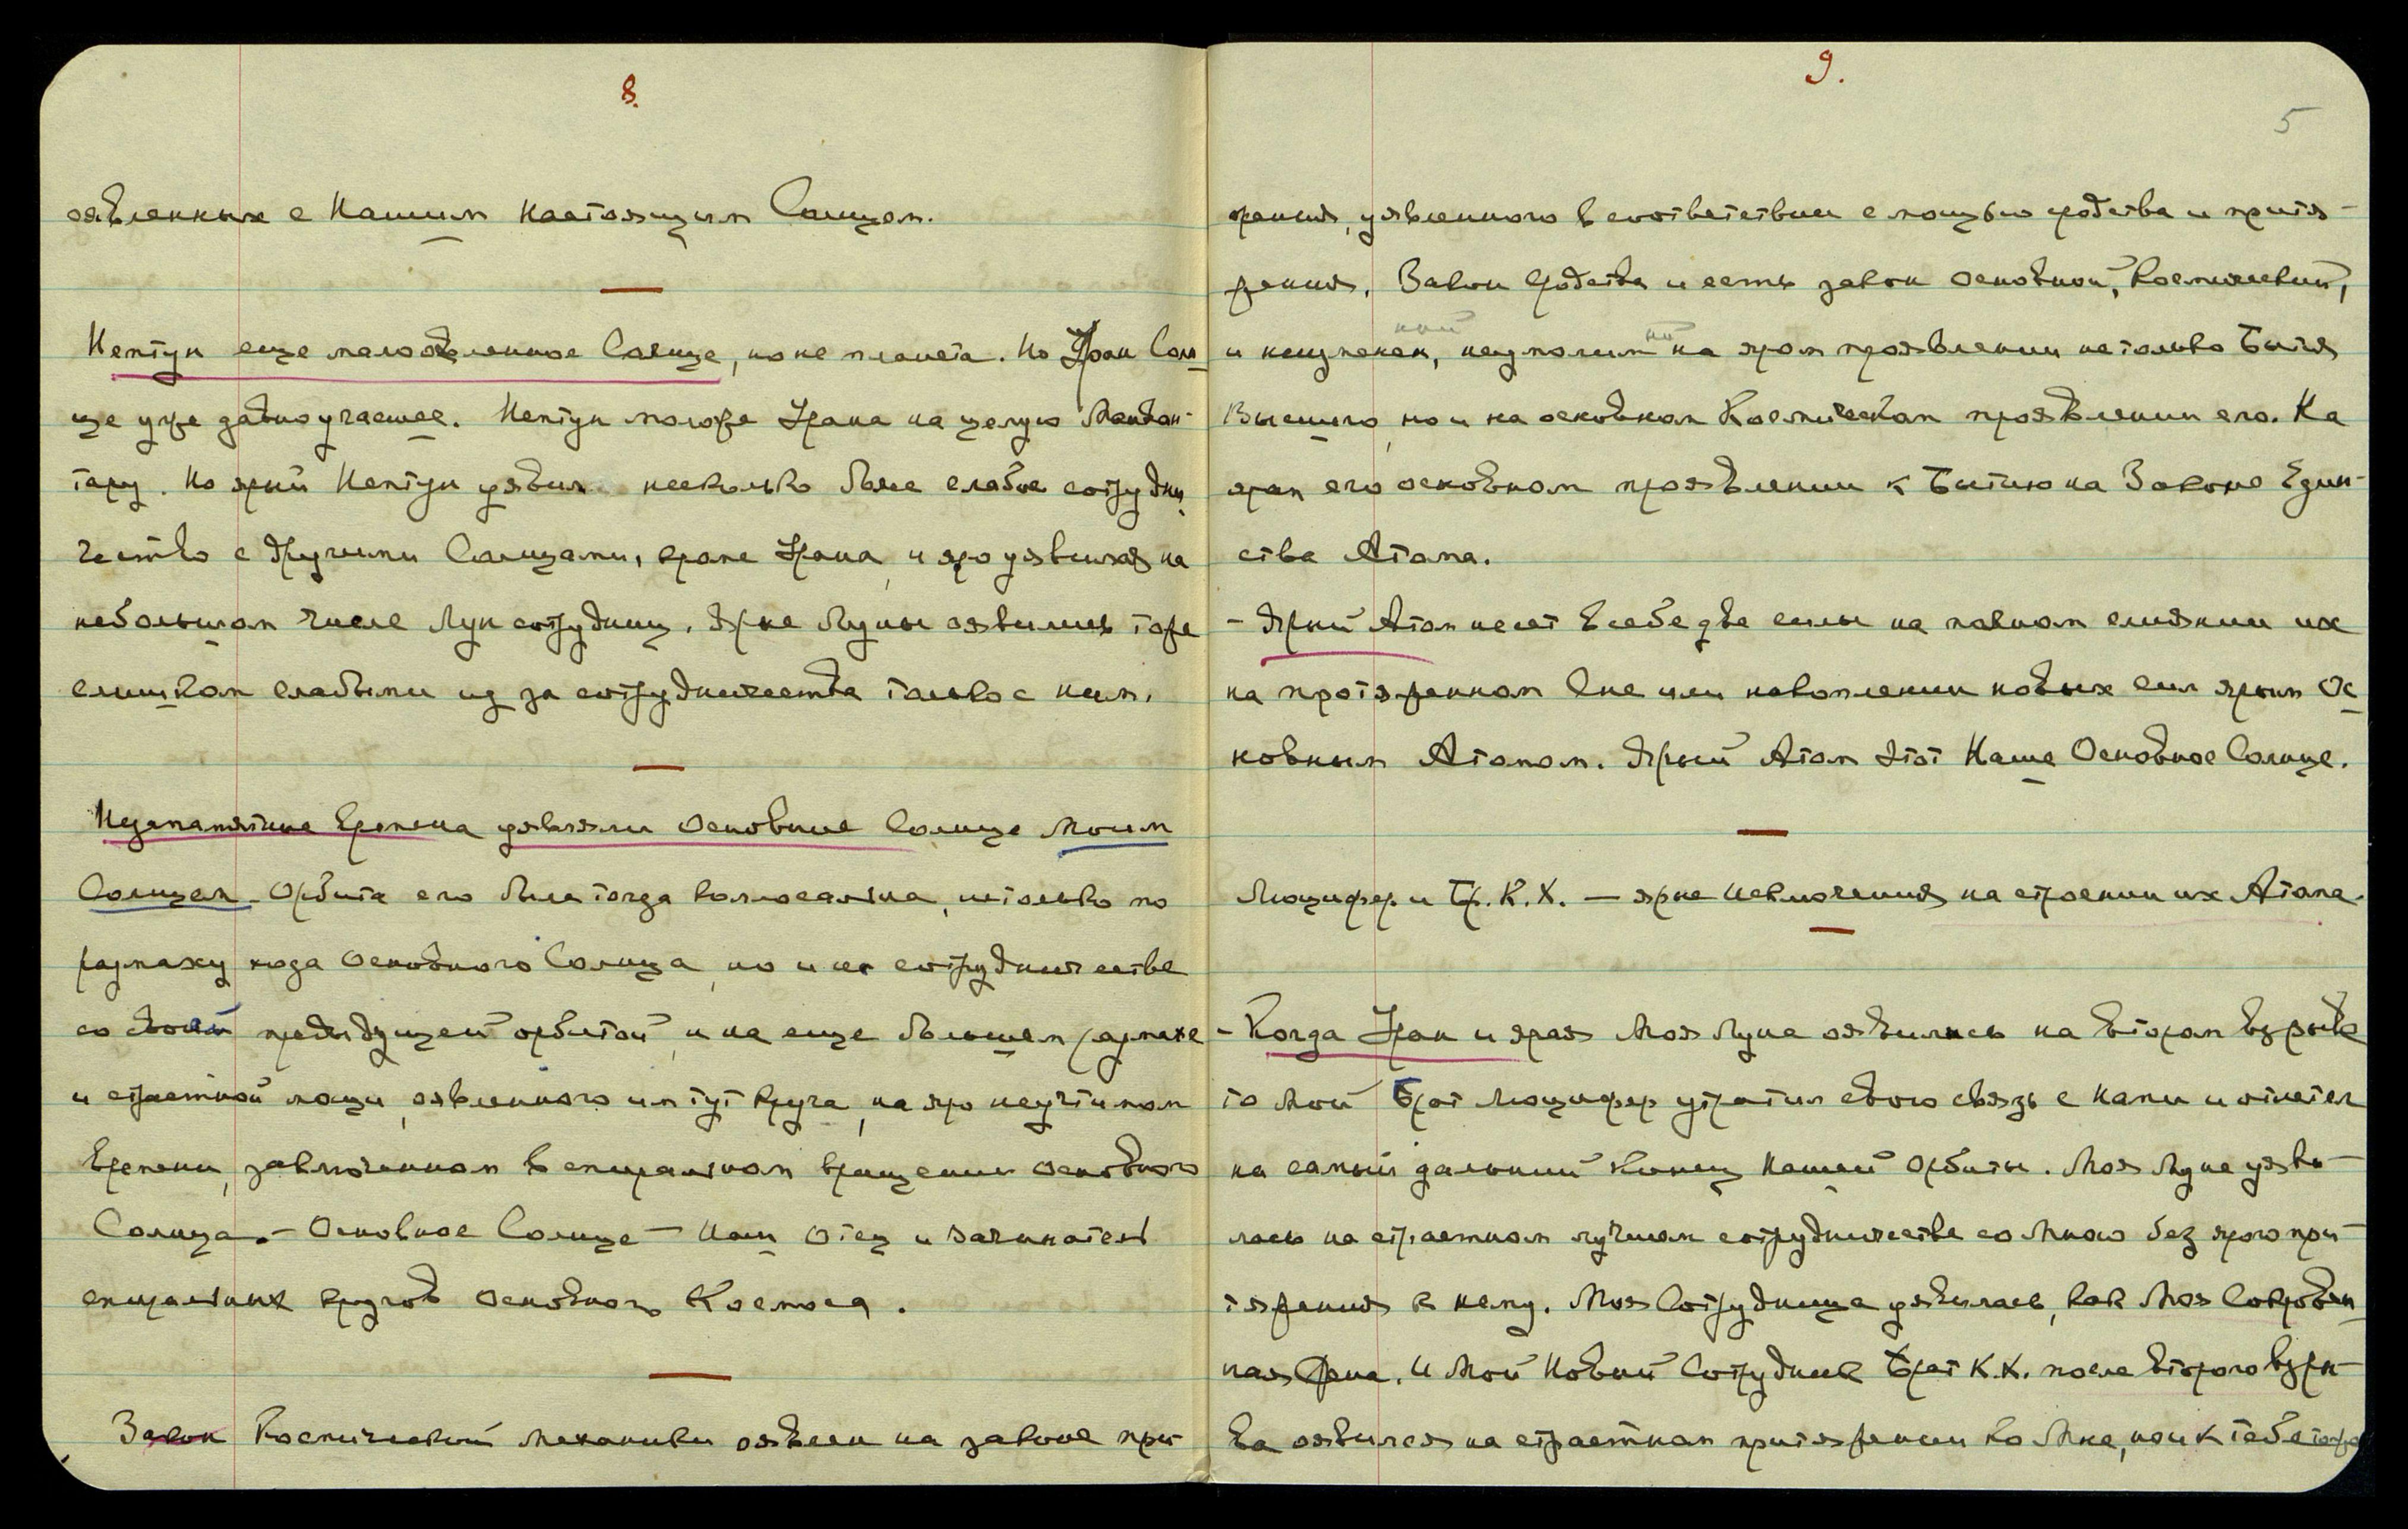 8.
оявленных с Нашим Настоящим Солнцем.
Нептун еще малооявленное Солнце, но не планета. Но Уран Солн
це уже давно угасшее. Нептун моложе Урана на целую Манван-
тару. Но ярый Нептун уявил несколько более слабое сотрудни
чество с другими Солнцами, кроме Урана, и яро уявился на
небольшом числе Лун сотрудниц. Ярые Луны оявились тоже
слишком слабыми из за сотрудничества только с ним.
Незапамятные Времена уявляли Основное Солнце Моим
Солнцем. Орбита его была тогда колоссальна, не только по
размаху хода Основного Солнца, но и на сотрудничестве
со своей предыдущей орбитой, и на еще большем размахе
и страстной мощи, оявленного им тут круга, на яро неучтимом
Времени, заключенном в спиральном вращении Основного
Солнца. – Основное Солнце – Наш Отец и Зачинатель
спиральных кругов Основного Космоса.
Закон Космической механики оявлен на законе при
9.
5
жения, уявленного в соответствии с мощью сродства и притя-
жения. Закон Сродства и есть закон Основной, Космический,
и неизменный, неумолимый на яром проявлении не только Бытия
Высшего, но и на основном Космическом проявлении его. На
яром его основном проявлении к Бытию на Законе Един-
ства Атома.
- Ярый Атом несет в себе две силы на полном слиянии их
на протяженном Сне или накоплении новых сил ярым Ос
новным Атомом. Ярый Атом Этот Наше Основное Солнце.
Люцифер и Бр. К. Х. — ярые исключения на строении их Атома.
- Когда Уран и ярая Моя Луна оявились на втором взрыве
то Мой Брат Люцифер утратил свою связь с Нами и отлетел
на самый дальний конец Нашей Орбиты. Моя Луна уяви-
лась на страстном лучшем сотрудничестве со Мною без ярого при-
тяжения к нему. Моя Сотрудница уявилась, как Моя Сокровен
ная Жена. И Мой Новый Сотрудник Брат К.Х. после второго взры-
ва оявился на страстном притяжении ко Мне, но и к тебе тоже